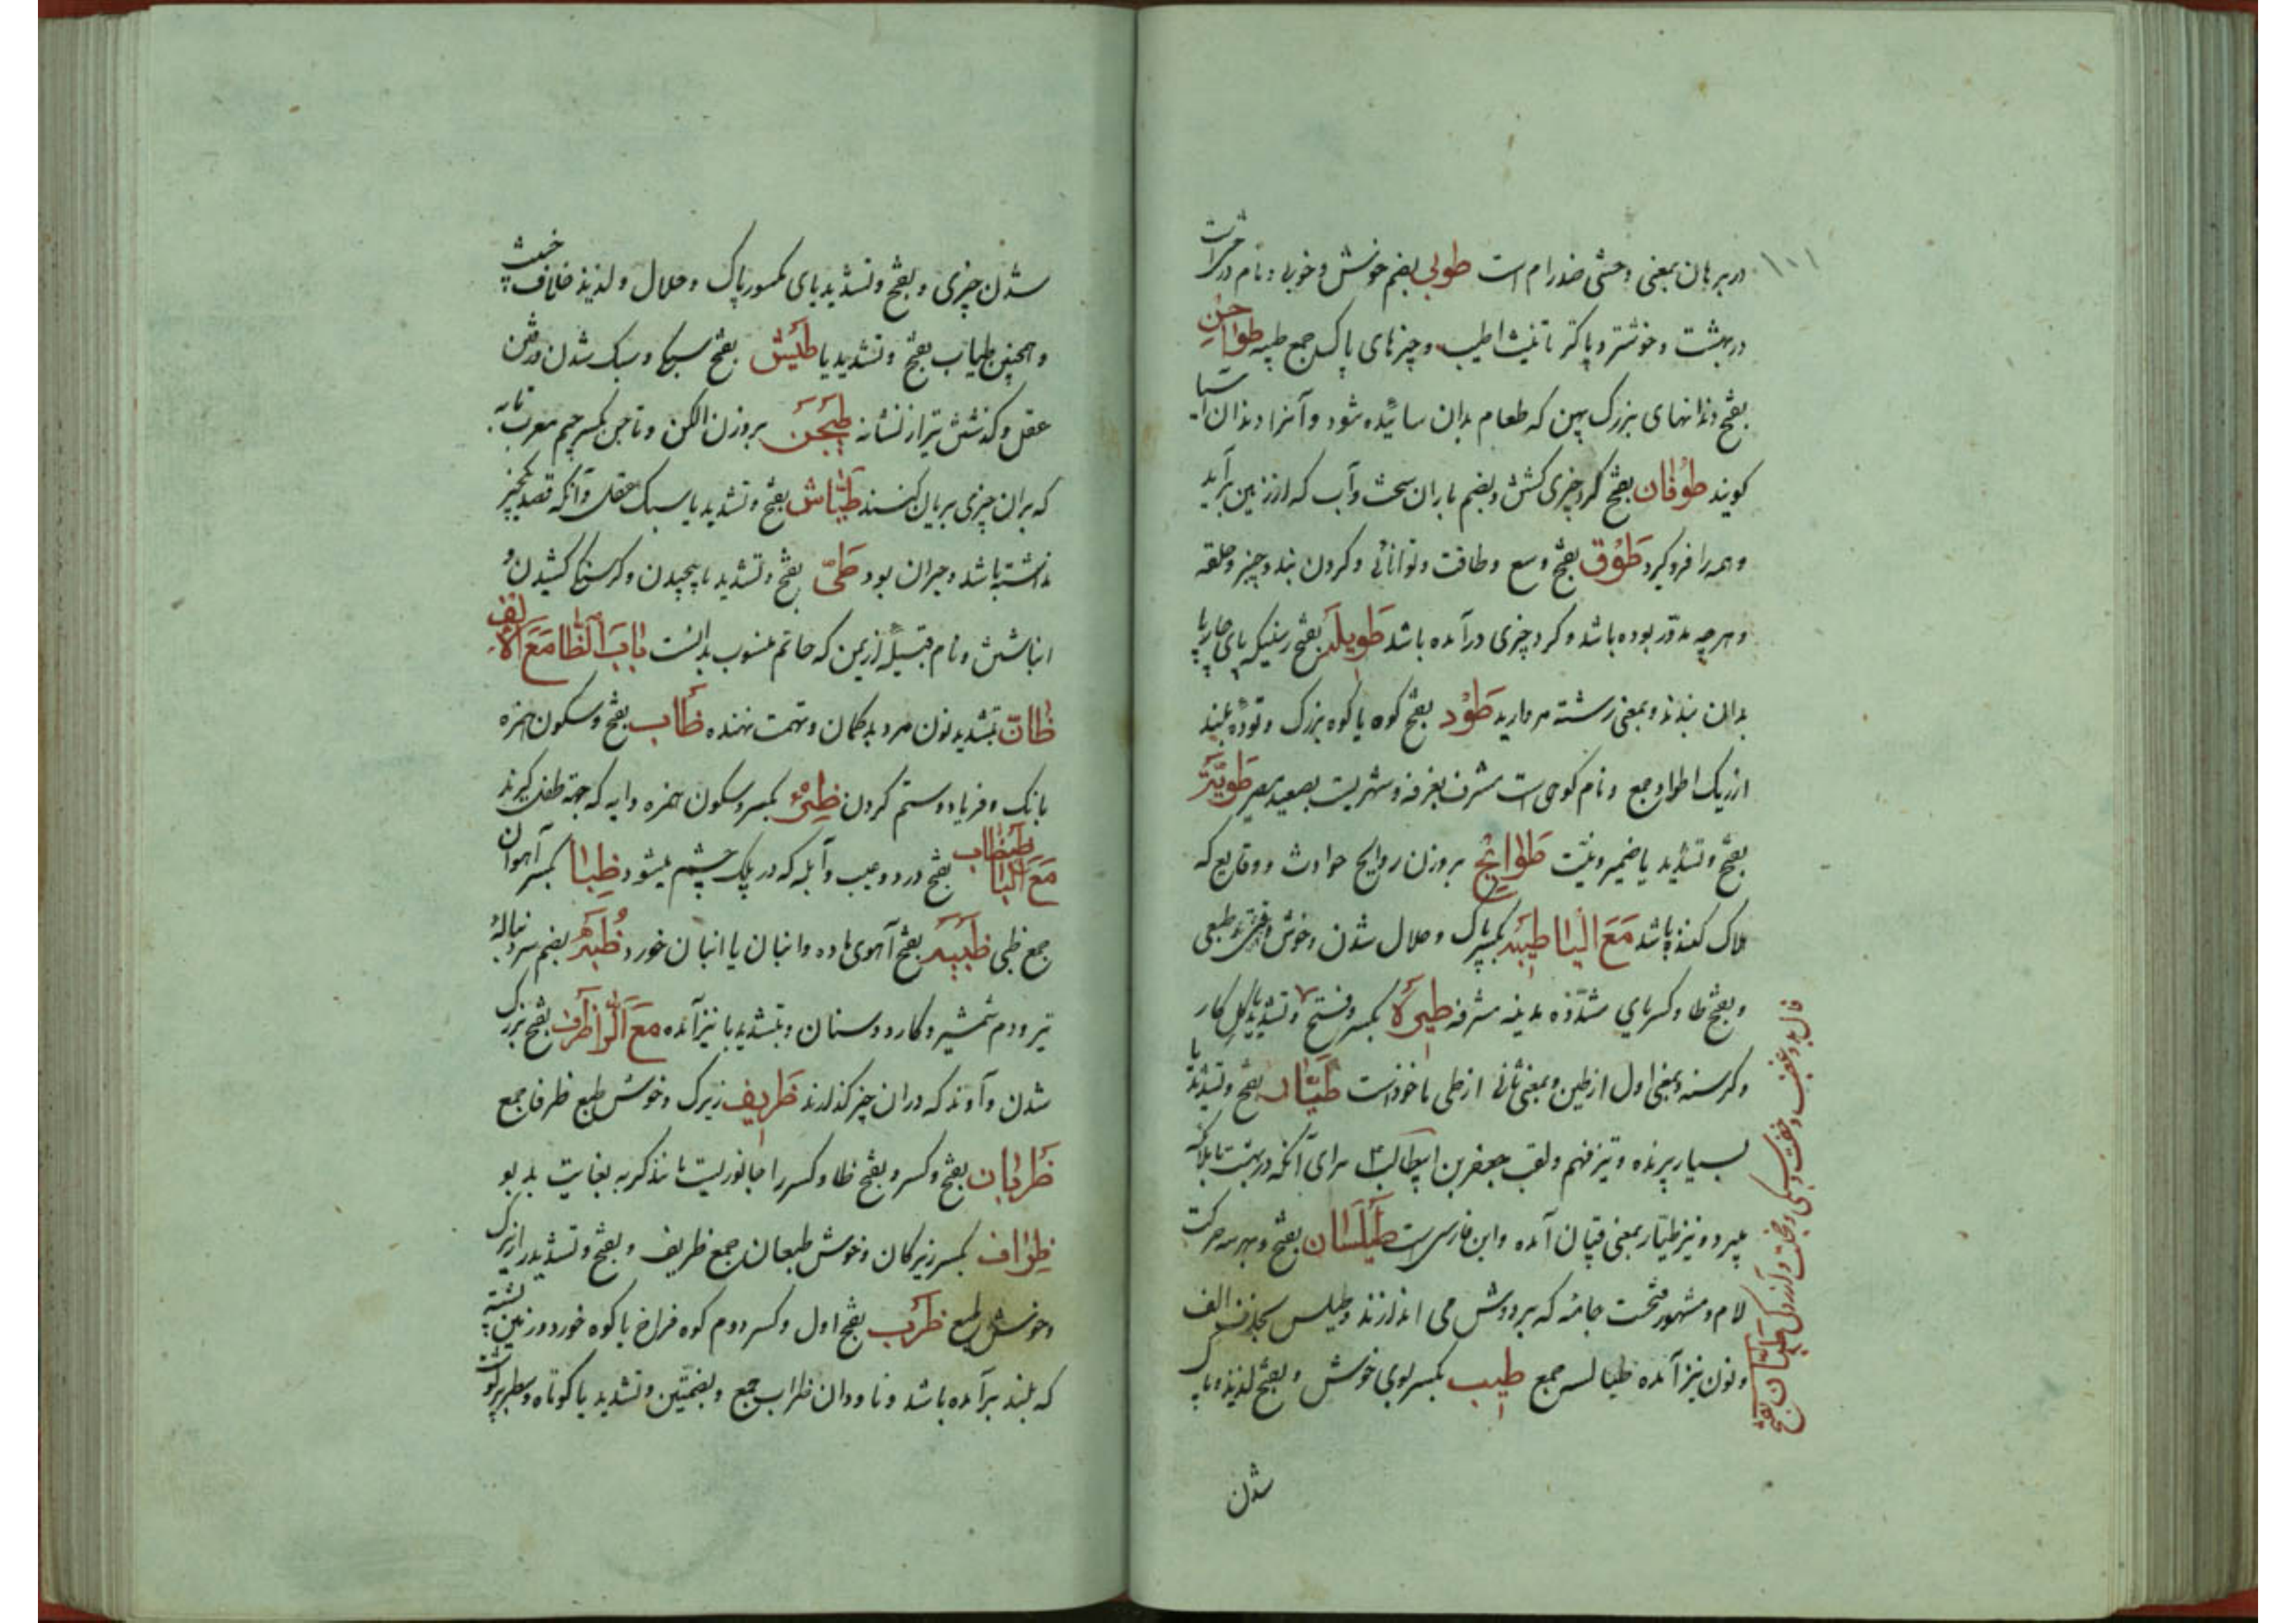 در برهان بمعنی وحشی ضد رام است طوبی بضم خوش و خوبی و نام درختیست
در بهشت و خوشتر و پاکتر تانیث اطیب و چیزهای پاک جمع طیبه طواحن
بفتح دندانهای بزرک پهن که طعام بدان سائیده شود و آنرا دندان آسیا
کویند طوفان بفتح کرد چیزی کشتن و بضم باران سخت و آب که از زمین برآید
و همه را فرو کیرد طوق بفتح وسع و طاقت و توانائی و کردن بند و چیز و حلقه
و هر چه مدور بوده باشد و کرد چیزی درآمده باشد طویله بفتح رسنیکه پای چارپا
بدان بندند و بمعنی رشته مروارید طود بفتح کوه یا کوه بزرک و توده بلند
از ریک اطواد جمع و نام کوهی است مشرف بعرفه و شهریست بصعید مصر طویة
بفتح و تشدید یا ضمیر و نیت طوایح بروزن روایح حوادث و وقایع که
هلاک کننده باشد مع الیا طیبه بکسر پاک و حلال شدن و خوش طبعی
و بفتح طا و کسر یای مشدده مدینه مشرفه طیره بکسر و فتح و تشدید یا کل کار
و کرسنه و بمعنی اول از طین و بمعنی ثانی از طی ماخوذ است طیار بفتح و تشدید یا
بسیار پرنده و تیز فهم و لقب جعفر بن ابیطالب برای آنکه در بهشت با ملائکه
میپرد و نیز طیار بمعنی قپان آمده و این فارسی است طیلسان بفتح و بهر سه حرکت
لام و مشهور فتحست جامه که بر دوش می اندازند و طیلس بحذف الف
و نون نیز آمده طیالسه جمع طیب بکسر بوی خوش و بفتح لذیذ و پاک
فال بد و غضب و خفت و سبکی و خجلت و آزردکی طیان بفتح
شدن
شدن چیزی و بفتح و تشدید یای مکسور پاک و حلال و لذیذ خلاف خبیث
و همچنین طیاب بفتح و تشدید یا طیش بفتح سبکی و سبک شدن و رفتن
عقل و کذشتن تیر از نشانه طیجن بروزن الکن و تاجن بکسر جیم معرب تابه
که بران چیزی بریان کنند طیاش بفتح و تشدید یا سبک عقل و آنکه قصد یکچیز
نداشته باشد و حیران بود طی بفتح و تشدید یا پیچیدن و کرسنکی کشیدن و
انباشتن و نام قبیله از یمن که حاتم منسوب بدانست باب الظا مع الالف
ظان بتشدید نون مرد بدکمان و تهمت نهنده ظأب بفتح و سکون همزه
بانک و فریاد و ستم کردن ظئر بکسر و سکون همزه دایه که جهة طفل کیرند
مع البا ظبظاب بفتح درد و عیب و آبله که در پلک چشم میشود ظبا بکسر آهوان
جمع ظبی ظبیه بفتح آهوی ماده و انبان یا انبان خورد ظبه بضم سر دنباله
تیر و دم شمشیر و کارد و سنان و بتشدید با نیز آمده مع الرا ظرف بفتح زیرک
شدن و آوند که دران چیز کذارند ظریف زیرک و خوش طبع ظرفا جمع
ظربان بفتح و کسر و بفتح ظا و کسر را جانوریست مانند کربه بغایت بدبو
ظراف بکسر زیرکان و خوش طبعان جمع ظریف و بفتح و تشدید را زیرک
و خوش طبع ظرب بفتح اول و کسر دوم کوه فراخ یا کوه خورد و زمین پشته
که بلند برآمده باشد و ناودان ظراب جمع و بضمتین و تشدید با کوتاه و سطبر پرکوشت